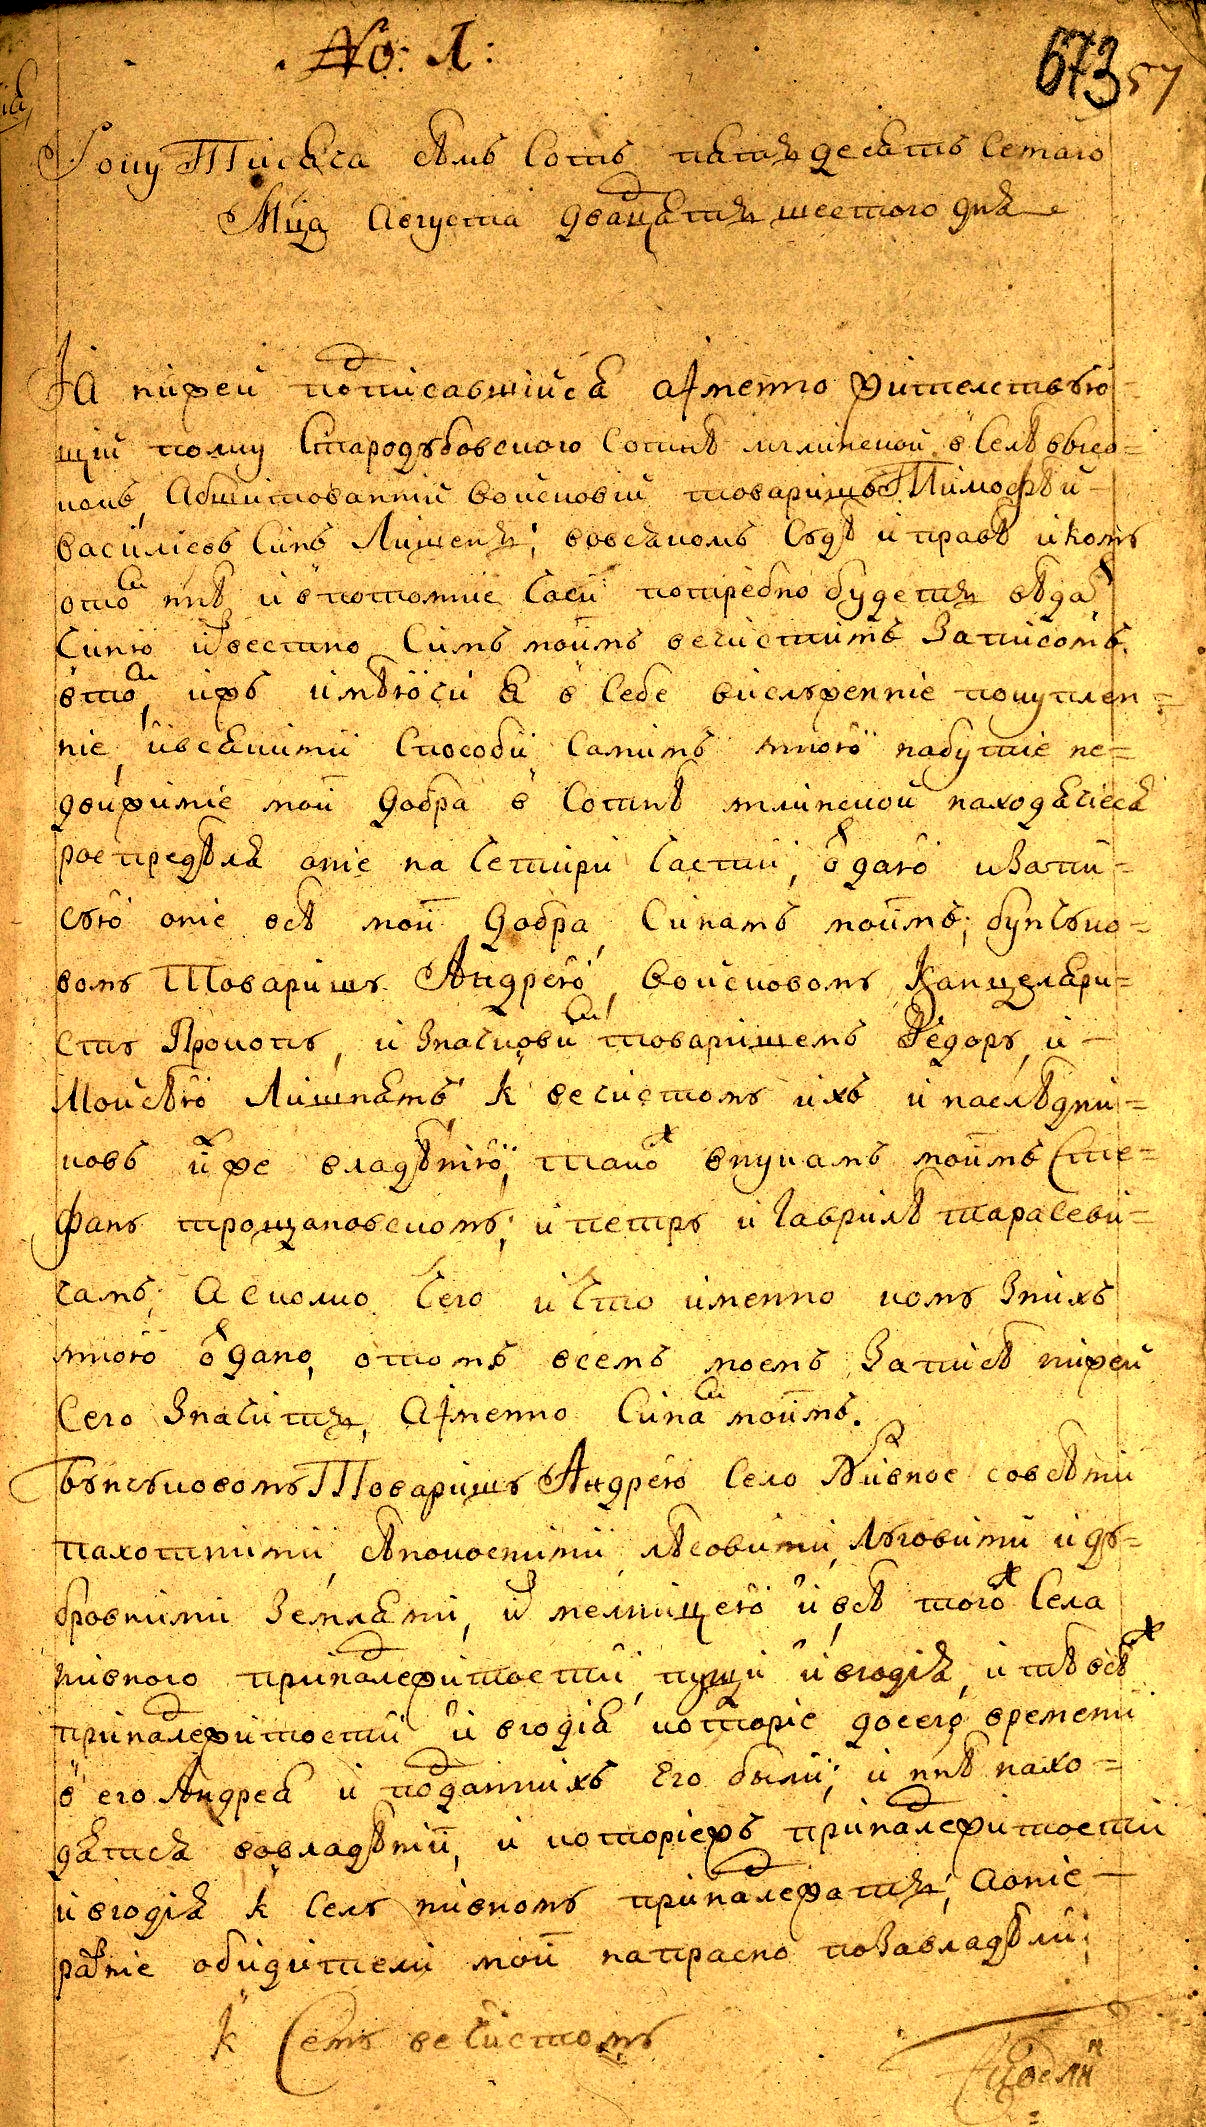 No: 1:
673 57
Року Тисяча сѣмъ сотъ пятъдесятъ семаго
Мца Августа двадцятъ шестого дня
Я нижей подписавшийся а именно жителствую-
щий полку Стародубовского Сотнѣ млинской в Селѣ высо-
комъ, Абшитованний войсковий товаришъ Тимофѣй
Василіевъ Синъ Лишень; вовсякомъ Судѣ и правѣ и кому
отом ннѣ и впотомние часи потребно будетъ вѣдат
Чиню извѣстно Симъ моимъ вечистимъ Записомъ.
втом, ижъ имѣючи я в себе вислуженніе покуплен-
ніе, и всякими способи самимъ мною набутіе не-
движиміе мои добра в Сотнѣ млинской находячіеся
роспредѣля оніе на Четири Части, отдаю и Запи-
сую оніе всѣ мои добра Синамъ моимъ; бунчуко-
вому Товаришу Андрею, войсковому Канцеляри-
сту Прокопу, и Значкови товаришемъ Федору, и
Мойсѣю Лишнямъ к вечистому ихъ и наслѣдни-
ковъ их же владѣнію; також внукамъ моимъ Сте-
фану трощановскому; и петру и Гаврилѣ тарасеви-
чамъ; А сколко Чего и Что именно кому Зних
мною отдано, отомъ всемъ моемъ Записѣ нижей
Сего Значитъ, А именно Синам моимъ.
Бунчуковому Товаришу Андрею Село Нивное совсѣми
пахотними, сѣнокосними лѣсовими, луговими и ду-
бровними Землями, и з мелницею и всѣ того ж Села
нивного приналежитости, пущи и вгодія, и тѣ всѣ ж
приналежитости и вгодія которіе досего времени
в его Андрея и подданнихъ Его были; и ннѣ нахо-
дятся вовладѣнии, и которіежъ приналежитости
и вгодія к Селу нивному приналежатъ, а оніе
разніе обидители мои напрасно поЗавладѣли;
к Сему вечистому